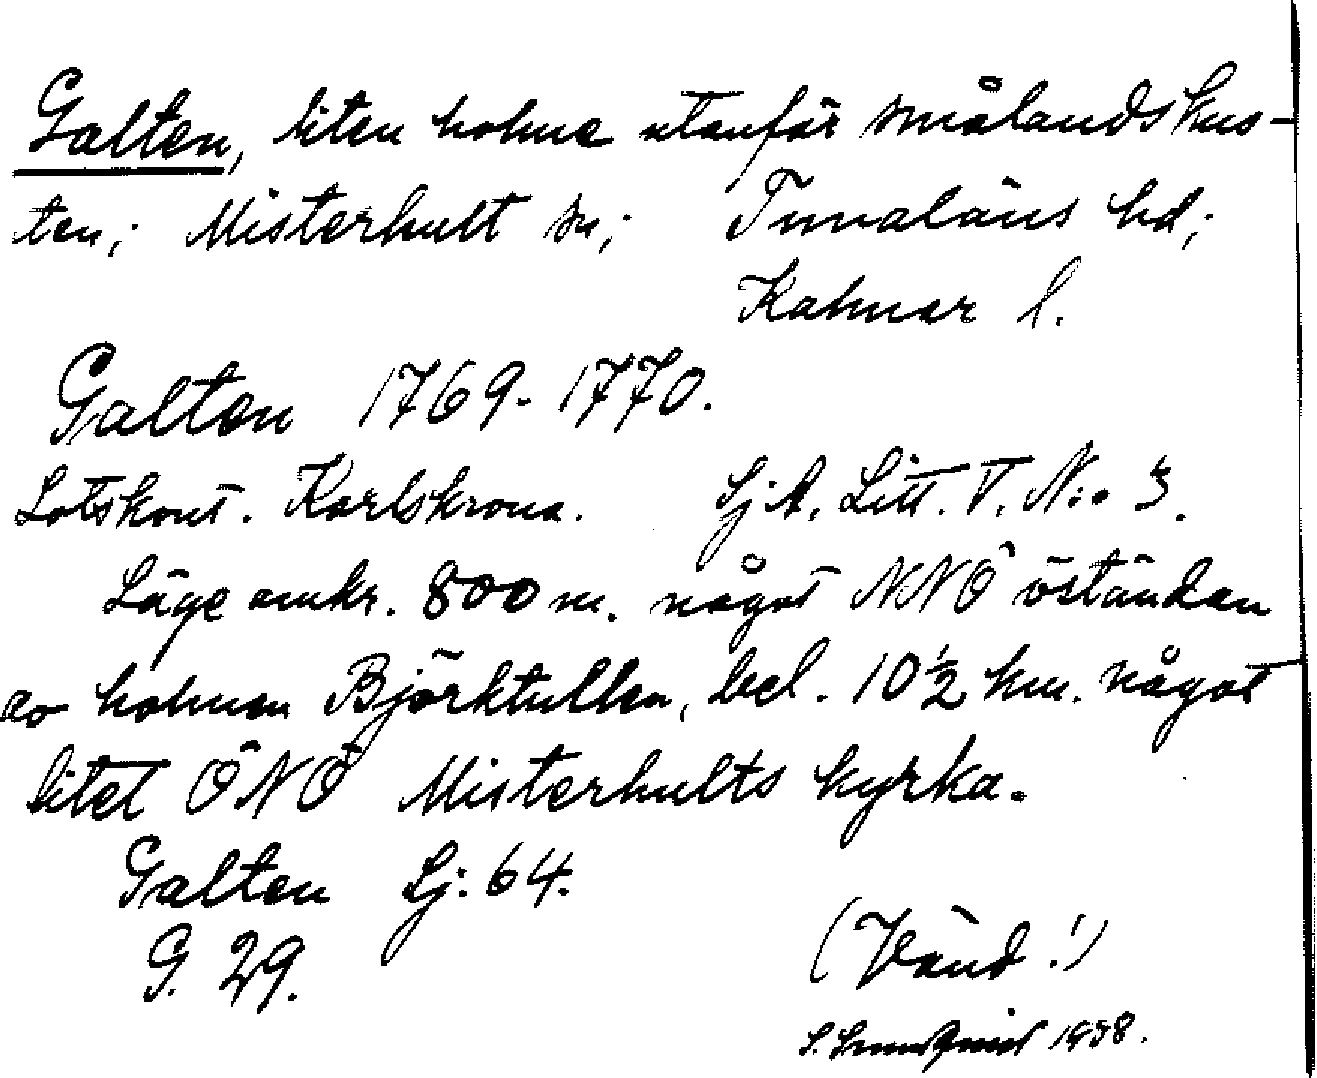 Galten, liten holme utanför smålandskus-
ten; Misterhult sn; Tunaläns hd;
Kalmar l.
Galten 1769-1770.
Lotskont. Karlskrona. Sj.A. Litt. T. N:o 3.
Läge omkr. 800 m. något NNÖ öständan
av holmen Björktullen, bel. 10½ km. något
litet ÖNÖ Misterhults kyrka.
Galten Sj: 64.
G. 29.
(Vänd!)
S. 1938.